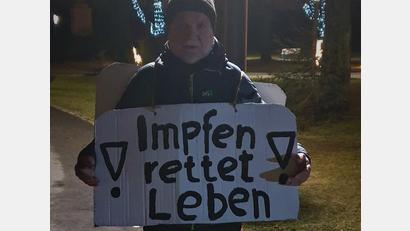 ! Impfen !
rettet
Leben